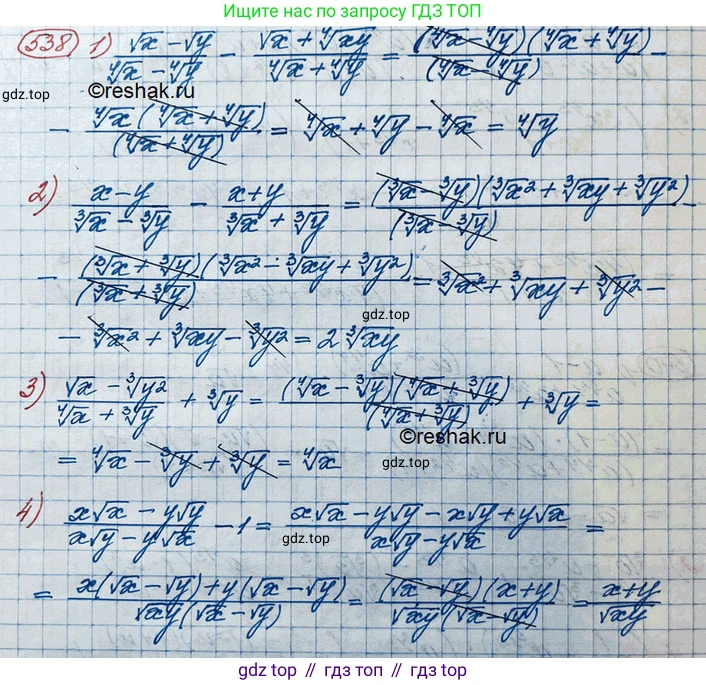 Ищите нас по запросу ГДЗ ТОП
538 1) (√x − √y)/(⁴√x − ⁴√y) − (√x + ⁴√xy)/(⁴√x + ⁴√y) = (⁴√x − ⁴√y)(⁴√x + ⁴√y)/(⁴√x − ⁴√y) −
gdz.top
©reshak.ru
− ⁴√x(⁴√x + ⁴√y)/(⁴√x + ⁴√y) = ⁴√x + ⁴√y − ⁴√x = ⁴√y
2) (x − y)/(∛x − ∛y) − (x + y)/(∛x + ∛y) = (∛x − ∛y)(∛x² + ∛xy + ∛y²)/(∛x − ∛y) −
− (∛x + ∛y)(∛x² − ∛xy + ∛y²)/(∛x + ∛y) = ∛x² + ∛xy + ∛y² −
gdz.top
− ∛x² + ∛xy − ∛y² = 2∛xy
3) (√x − ∛y²)/(⁴√x + ∛y) + ∛y = (⁴√x − ∛y)(⁴√x + ∛y)/(⁴√x + ∛y) + ∛y =
©reshak.ru
= ⁴√x − ∛y + ∛y = ⁴√x
gdz.top
4) (x√x − y√y)/(x√y − y√x) − 1 = (x√x − y√y − x√y + y√x)/(x√y − y√x) =
gdz.top
= (x(√x − √y) + y(√x − √y))/(√xy(√x − √y)) = (√x − √y)(x + y)/(√xy(√x − √y)) = (x + y)/√xy
gdz top // гдз топ // gdz.top